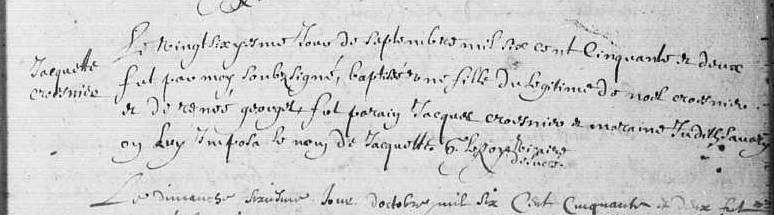 Jacquette
croesnier
Le vingt sixyesme Jour de septembre mil six cent Cinquante et deux
fut par moy soubz signé, baptisée une fille du legitime de noel croesnier
et de renée georget, fut parain Jacques croesnier et maraine Judith Lavary
on luy Imposa le nom de Jacquette G. Leroy vicaire
Le dimanche sixiesme Jour doctobre mil six Cent Cinquante et deux fut